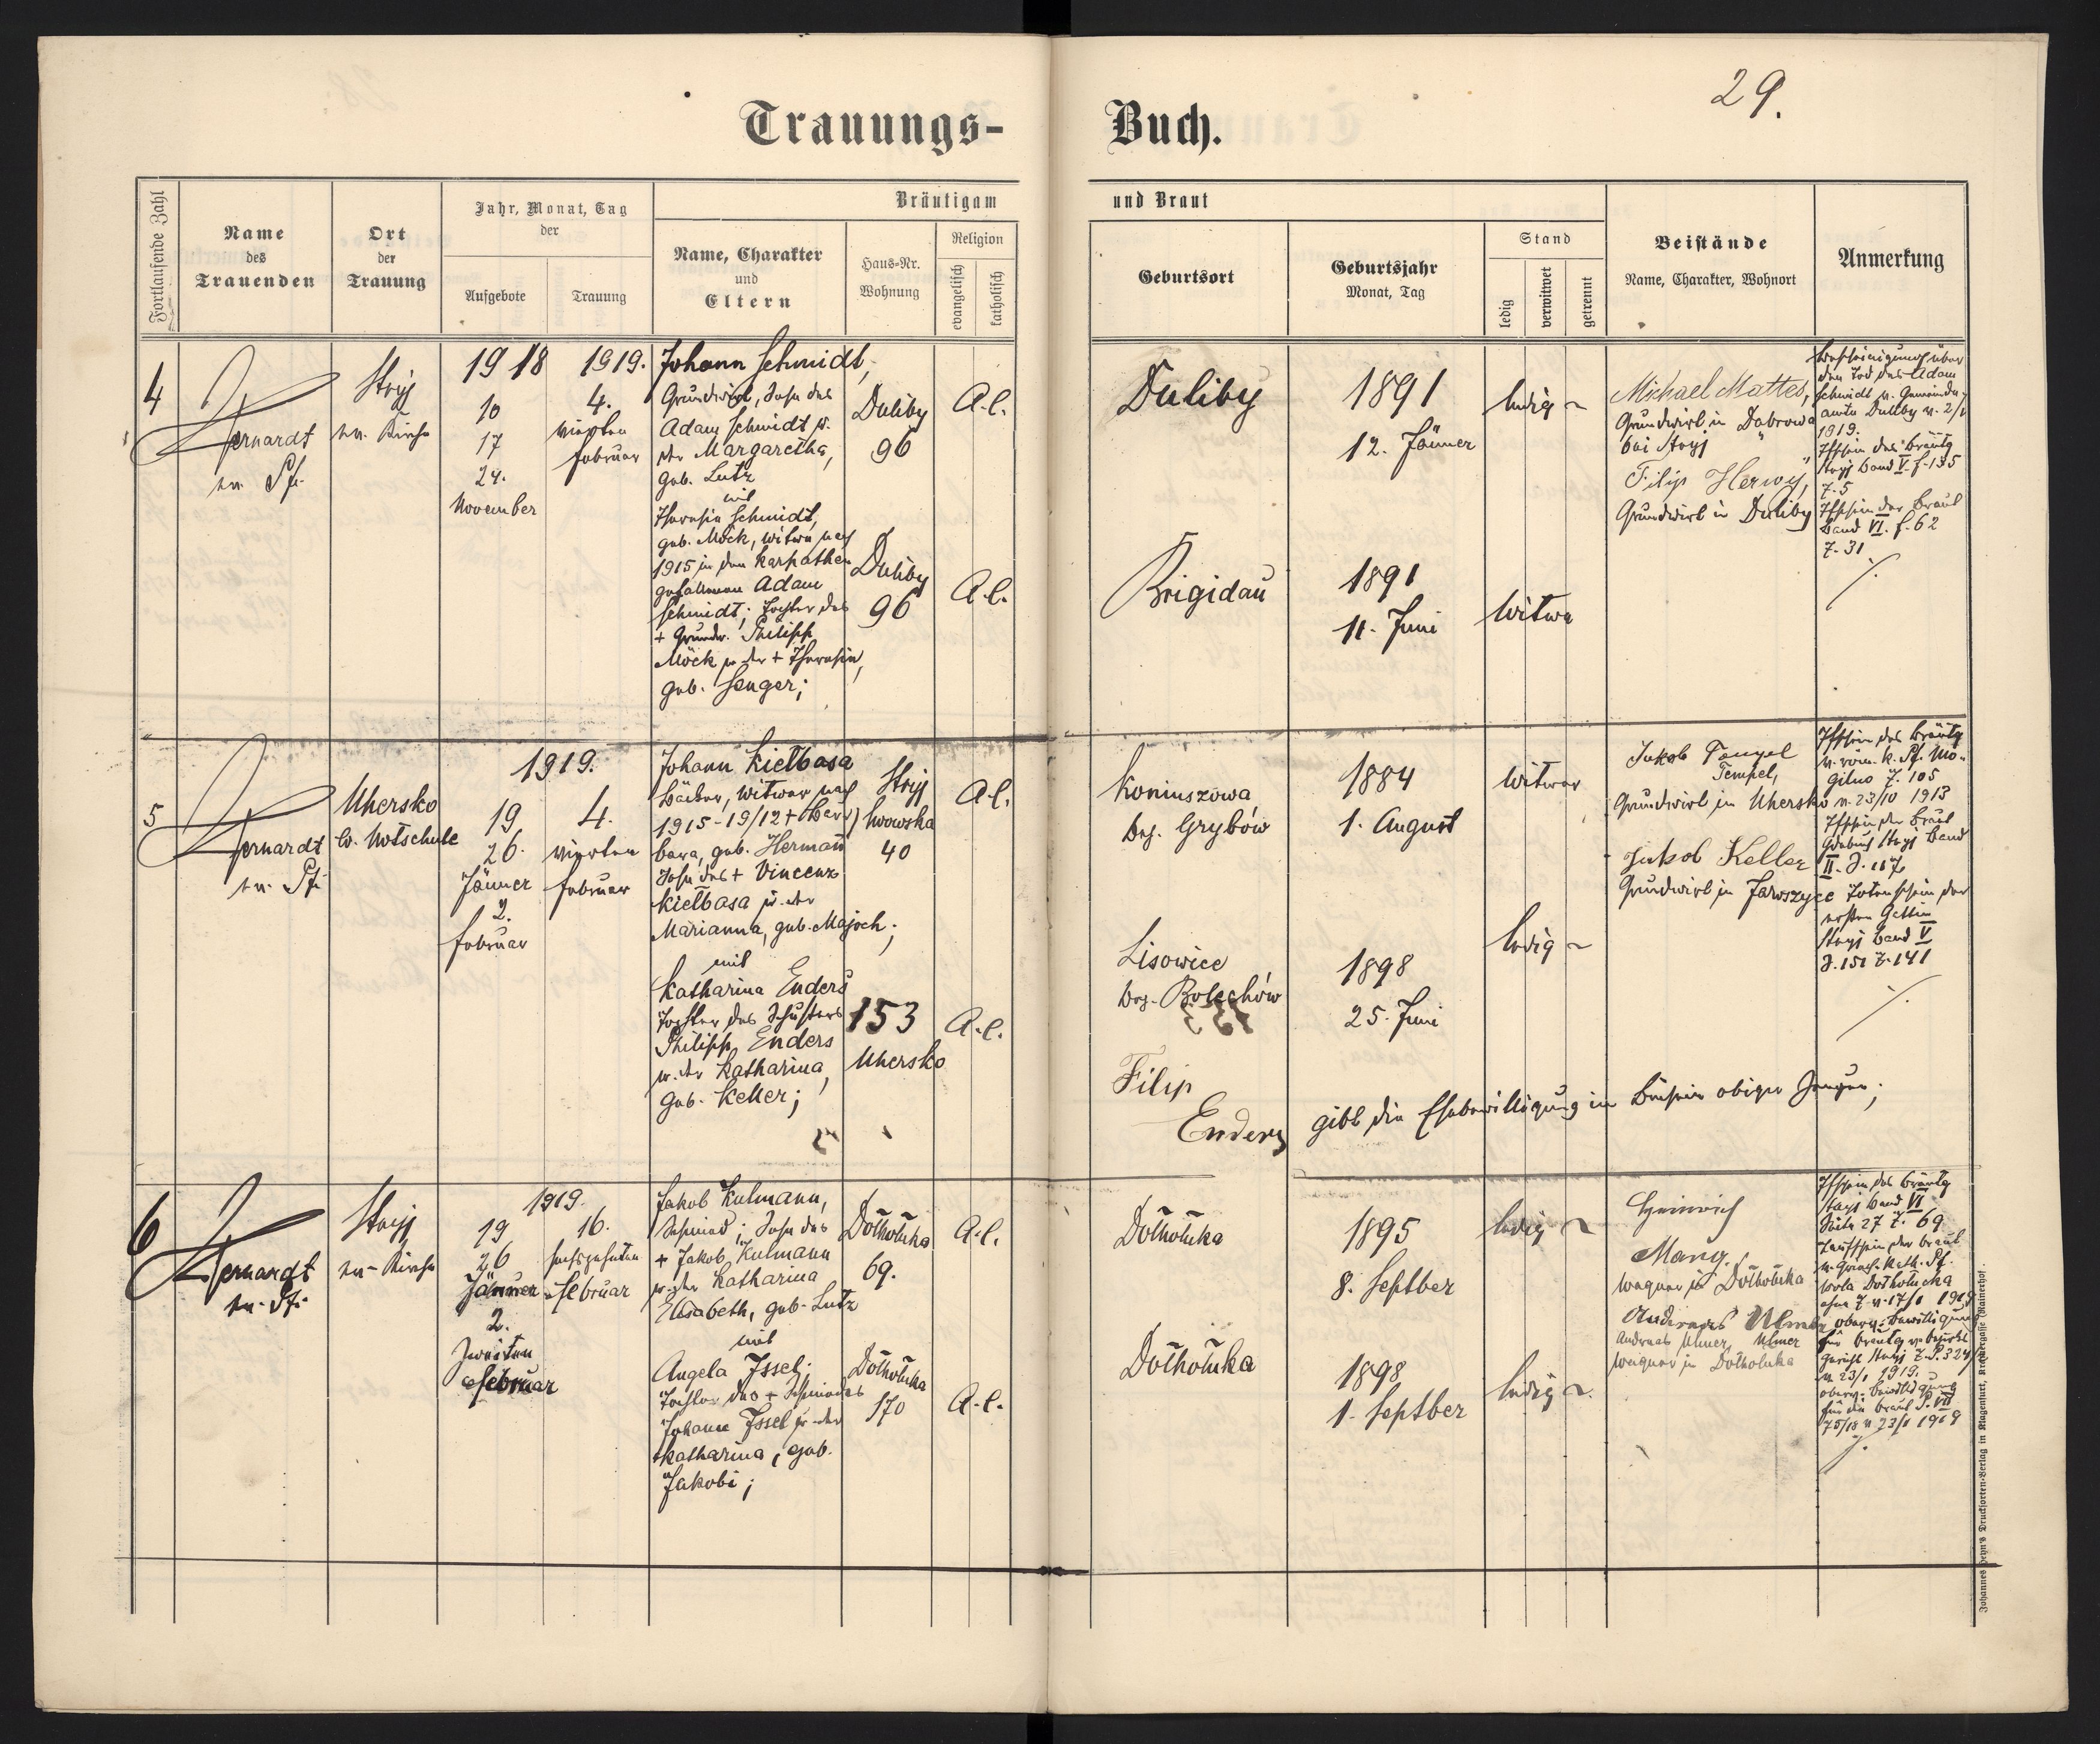 29.
Trauungs-Buch.
Fortlaufende Zahl
Name
des
Trauenden
Ort
der
Trauung
Jahr, Monat, Tag
der
Aufgebote
Trauung
Bräutigam
Name, Charakter
und
Eltern
Haus-Nr.
Wohnung
Religion
evangelisch
katholisch
und Braut
Geburtsort
Geburtsjahr
Monat, Tag
Stand
ledig
verwitwet
getrennt
Beistände
Name, Charakter, Wohnort
Anmerkung
4
ev. Pf.
Stryj
ev. Kirche
1918
10
17
24.
November
1919.
4.
vierten
Februar
Johann Schmidt,
Grundwirt, Sohn des
Adam Schmidt u.
der Margaretha,
geb. Lutz
mit
Theresia Schmidt,
geb. Möck, Witwe nach
1915 in den Karpathen
gefallenen Adam
Schmidt; Tochter des
+ Grundw. Philipp
Möck u. der + Theresia,
geb. Senger;
Duliby
96
Duliby
96
A.C.
A.C.
Duliby
Brigidau
1891
12. Jänner
1891
11. Juni
ledig
Witwe
Michael Mattes,
Grundwirt in Dabrowa
bei Stryj
Filip Herwy,
Grundwirt in Duliby
Bescheinigung über
den Tod des Adam
Schmidt v. Gemeinde-
amte Duliby v. 2/1
1919.
Tfschein des Bräutg
Stryj Band V f. 135
Z. 5
Tfschein der Braut
Band VI. f. 62
Z. 31
5
ev. Pf.
Uhersko
ev. Notschule
1919.
19
26.
Jänner
2.
Februar
4.
vierten
Februar
Johann Kiełbasa
Bäcker, Witwer nach
1915-19/12 + Bar-
bara, geb. Hermann
Sohn des + Vincenz
Kiełbasa u. der
Marianna, geb. Majoch;
mit
Katharina Enders
Tochter des Schusters
Philipp Enders
u. der Katharina,
geb. Keller;
Stryj
Lwowska
40
153
Uhersko
A.C.
A.C.
Koniuszowa
Bez. Grybów
Lisowice
Bez. Bolechów
1884
1. August
1898
25. Juni
Witwer
ledig
Jakob Tempel
Tempel,
Grundwirt in Uhersko
Jakob Keller
Grundwirt in Jaroszyce
Tfschein des Bräutg
v. röm. k. Pf. Mo-
gilno Z. 105
v. 23/10 1913
Tfschein der Braut
Stryj Band
Totenschein der
ersten Gattin
Stryj Band V
S. 151 Z. 141
Filip
Enders gibt die Ehebewilligung in Beisein obiger Zeugen;
6
ev. Pf.
Stryj
ev. Kirche
1919.
19
26
Jänner
2.
zweiten
Februar
16.
sechzehnten
Februar
Jakob Kulmann,
Schmied; Sohn des
+ Jakob Kulmann
u. der Katharina
Elisabeth, geb. Lutz
mit
Angela Issel;
Tochter des + Schmiedes
Johann Issel u. der
Katharina, geb.
Jakobi;
Dołhołuka
69.
Dołhołuka
170
A.C.
A.C.
Dołhołuka
Dołhołuka
1895
8. Septber
1898
1. Septber
ledig
ledig
Heinrich
Mang.
Wagner in Dołhołuka
Andreas Ulmer
Andreas Ulmer Ulmer
Wagner in Dołholuka
Tfschein des Bräutg
Stryj Band VI
Seite 27 Z. 69
Taufschein der Braut
v. griech. kath. Pf.
Wola Dołhołucka
ohne Z. v. 17/1 1919
oberv. Bewilligung
für Bräutg v. Bezirks
gericht Stryj
v. 23/1 1919.
oberv. Bewilligung
für die Braut P. VII
75/18 v. 23/1 1919
Johannes Heyn's Drucksorten-Verlag in Klagenfurt, Kramergasse, Rainerhof.